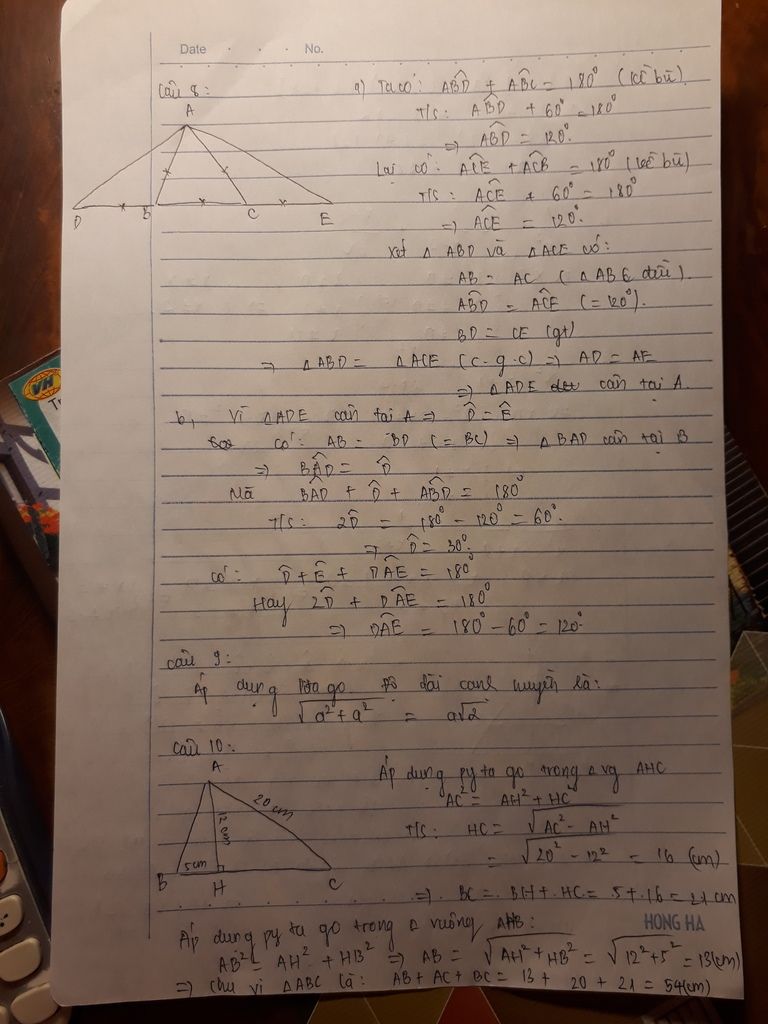 Date . . . No.
Câu 8:
A
D B C E
a) Ta có: ABD̂ + ABĈ = 180° (kề bù)
T/S: ABD̂ + 60° = 180°
=> ABD̂ = 120°.
Lại có: ACÊ + ACB̂ = 180° (kề bù)
T/S: ACÊ + 60° = 180°
=> ACÊ = 120°.
Xét Δ ABD và Δ ACE có:
AB = AC (Δ ABC đều).
ABD̂ = ACÊ (= 120°).
BD = CE (gt)
=> Δ ABD = Δ ACE (c.g.c) => AD = AE
=> Δ ADE cân tại A.
b, Vì Δ ADE cân tại A => D̂ = Ê
có: AB = BD (= BC) => Δ BAD cân tại B
=> BAD̂ = D̂
Mà BAD̂ + D̂ + ABD̂ = 180°
T/S: 2D̂ = 180° - 120° = 60°.
=> D̂ = 30°.
có: D̂ + Ê + DAÊ = 180°
Hay 2D̂ + DAÊ = 180°
=> DAÊ = 180° - 60° = 120°.
Câu 9:
Áp dụng Pitago độ dài cạnh huyền là:
√(a² + a²) = a√2
Câu 10:
A
20 cm
12 cm
5 cm
B H C
Áp dụng py ta go trong Δ vg AHC
AC² = AH² + HC²
T/S: HC = √(AC² - AH²)
= √(20² - 12²) = 16 (cm)
=> BC = BH + HC = 5 + 16 = 21 cm
Áp dụng py ta go trong Δ vuông AHB:
HONG HA
AB² = AH² + HB² => AB = √(AH² + HB²) = √(12² + 5²) = 13 (cm)
=> Chu vi Δ ABC là: AB + AC + BC = 13 + 20 + 21 = 54 (cm)
VH